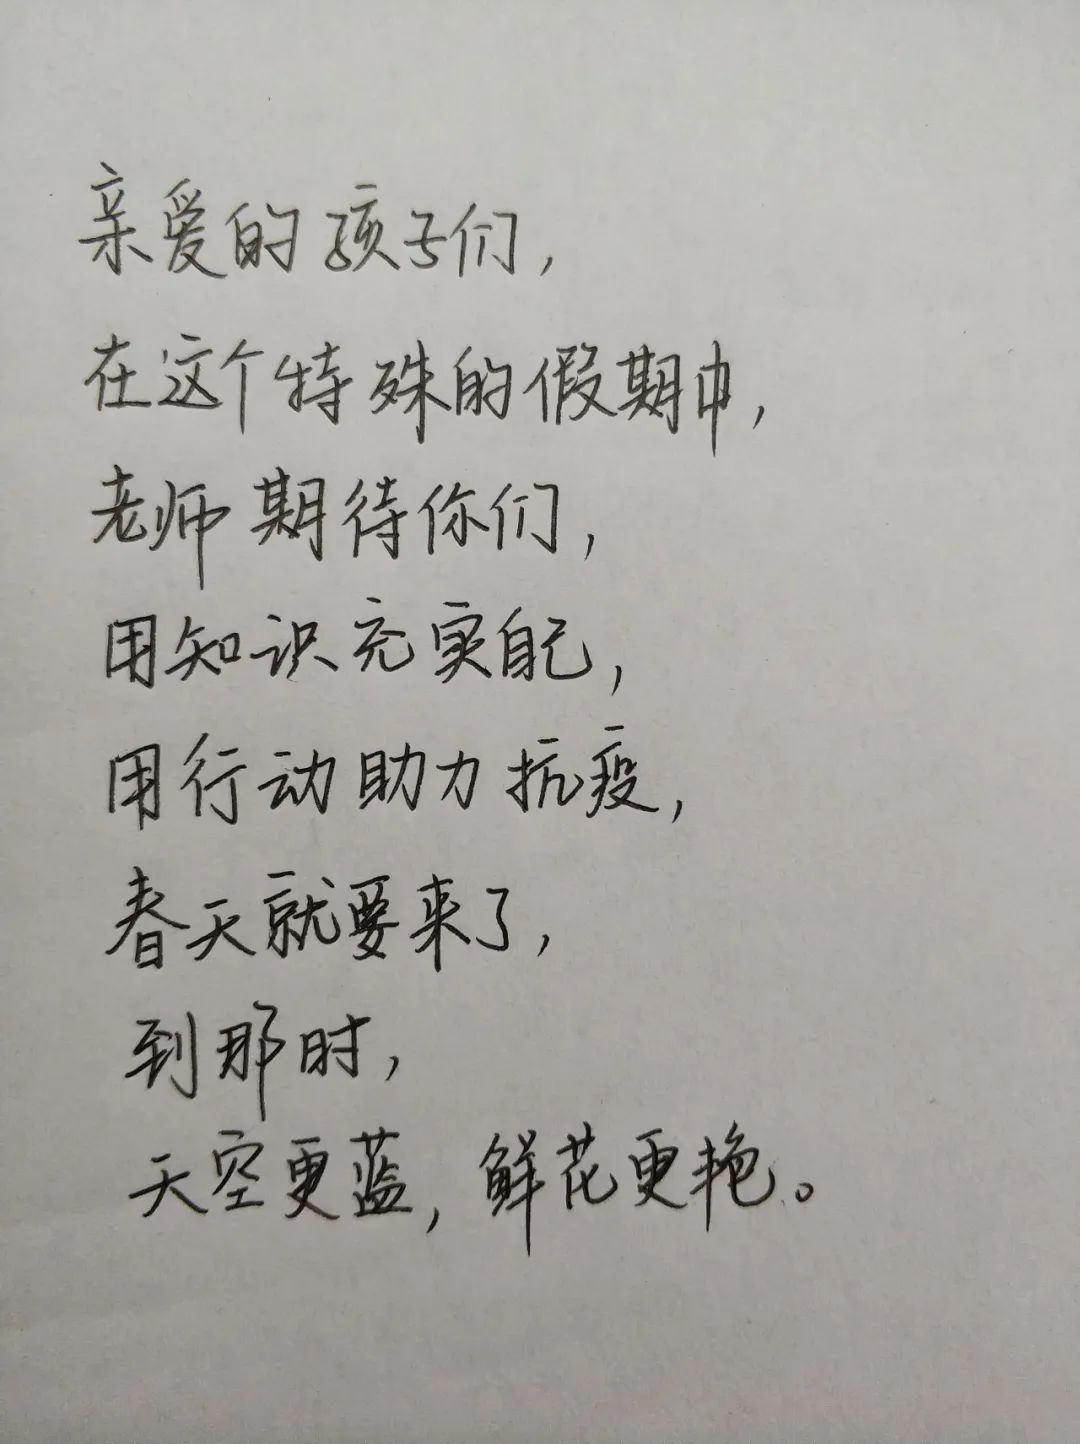 亲爱的孩子们，
在这个特殊的假期中，
老师期待你们，
用知识充实自己，
用行动助力抗疫，
春天就要来了，
到那时，
天空更蓝，鲜花更艳。